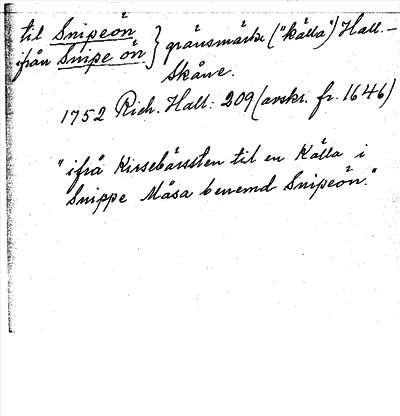 til Snipeön
ifrån Snipe ön } gränsmärke ("källa") Hall.-
Skåne.
1752 Rich. Hall: 209 (avskr. fr. 1646)
"ifrå Kirsebärssten til en Källa i
Snippe Måsa benemd Snipeön."